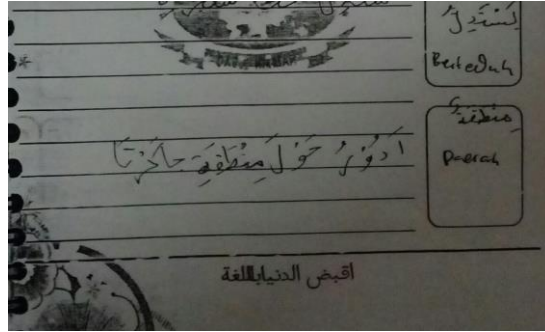 يَسْتَظِلُّ
Berteduh
مِنْطَقَةٌ
Daerah
اَدُوْرُ حَوْلَ مِنْطَقَةِ جاكَرْتَا
اقبض الدنياباللغة